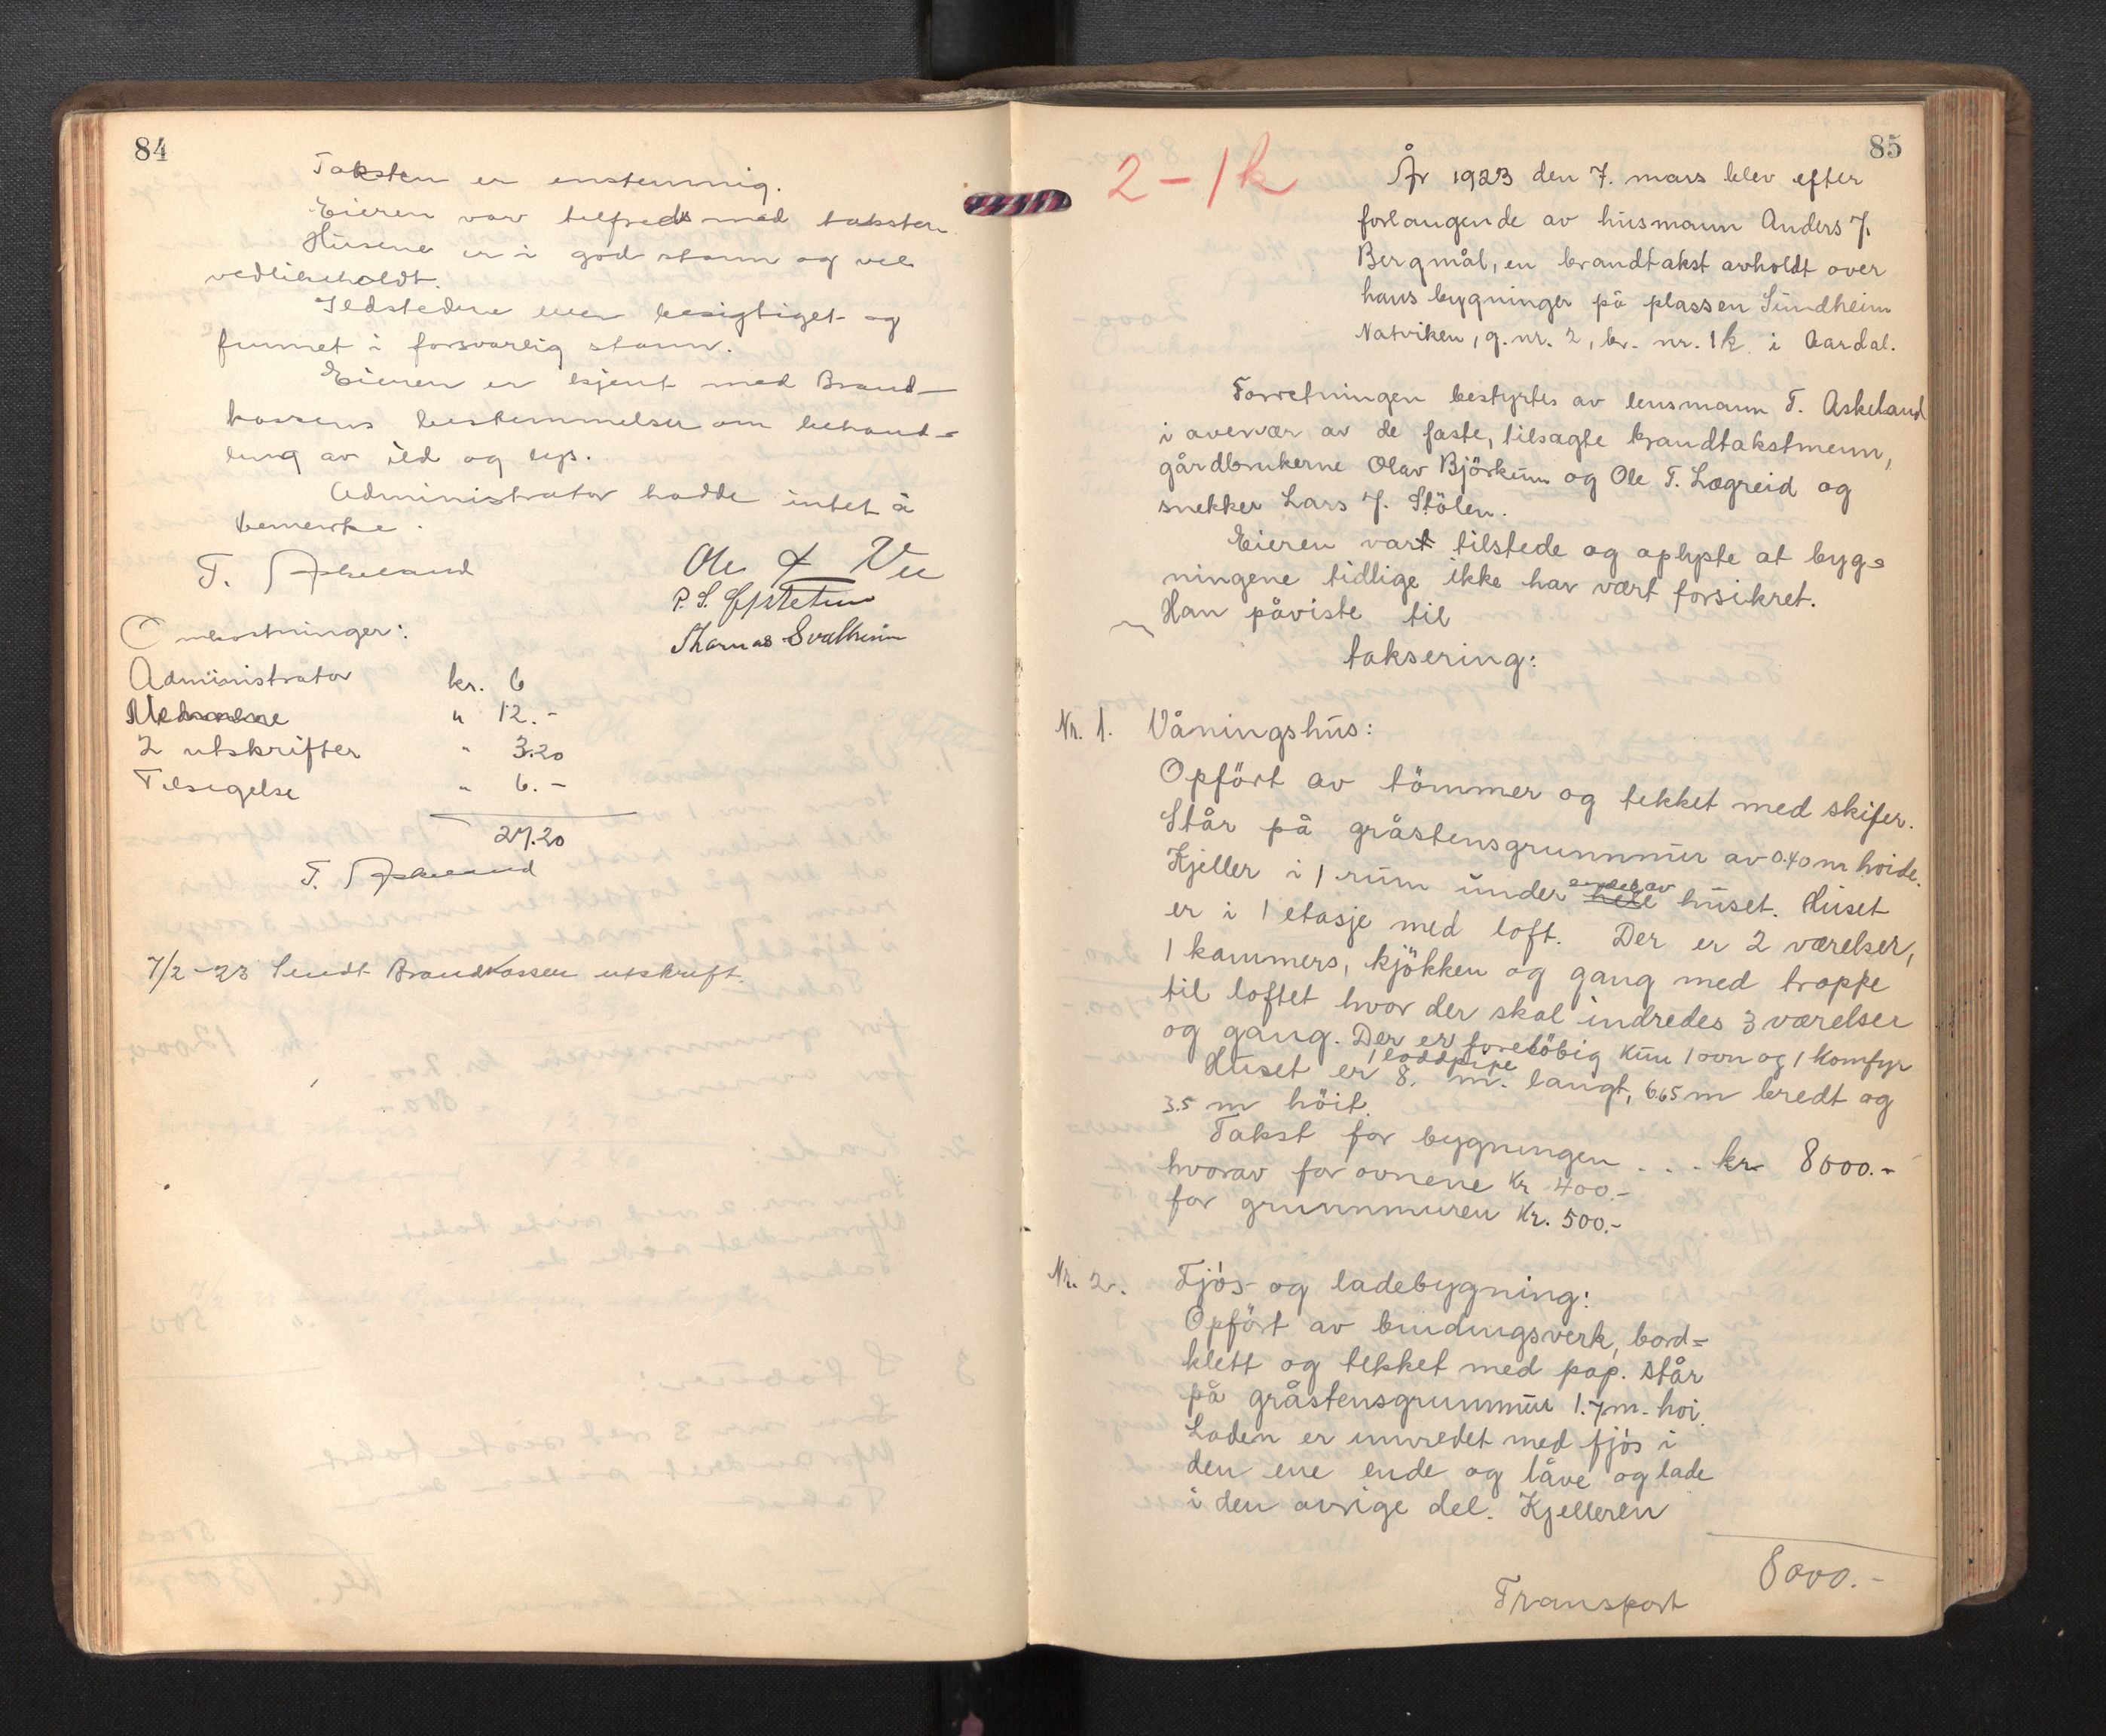 84
Taksten er enstemmig.
Eieren var tilfreds med taksten.
Husene er i god stann og vel
vedlikeholdt.
Ildstedene blev besigtiget og
funnet i forsvarlig stann.
Eieren er kjent med Brand-
kassens bestemmelser om behand-
ling av ild og lys.
Administrator hadde intet å
bemerke.
T. Askeland
Ole Ve
P. S.
Thomas Svalheim
Omkostninger:
Administrator kr. 6
Mennene " 12.-
2 utskrifter " 3.20
Tilsigelse " 6.-
27.20
T. Askeland
7/2-23 Sendt Brandkassen utskrift.
85
2-1k
År 1923 den 7. mars blev efter
forlangende av husmann Anders J.
Bergmål, en brandtakst avholdt over
hans bygninger på plassen Sundheim
Natviken, g.nr. 2, br. nr. 1k i Aardal.
Forretningen bestyrtes av lensmann T. Askeland
i overvær av de faste, tilsagte brandtakstmenn,
gårdbrukerne Olav Björkum og Ole T. Lægreid og
snekker Lars J. Stölen.
Eieren vart tilstede og oplyste at byg=
ningene tidlige ikke har vært forsikret.
Han påviste til
taksering:
Nr. 1. Våningshus:
Opfört av tömmer og tekket med skifer.
Står på gråstensgrunnmur av 0.40 m hoide.
Kjeller i 1 rum under hele endel av huset. Huset
er i 1 etasje med loft. Der er 2 værelser,
1 kammers, kjökken og gang med trappe
til loftet hvor der skal indredes 3 værelser
og gang. Der er forelöbig kun 1 ovn og 1 komfyr
1 loddpipe
Huset er 8. m. langt, 6.65 m bredt og
3.5 m höit.
Takst for bygningen ... kr 8000.-
hvorav for ovnene kr 400.-
for grunnmuren kr. 500.-
Nr. 2. Fjös- og ladebygning:
Opfört av bindingsverk, bord=
klett og tekket med pap. Står
på gråstensgrunnmur 1.7 m. hoi.
Laden er innredet med fjös i
den ene ende og låve og lade
i den övrige del. Kjelleren
Transport 8000.-